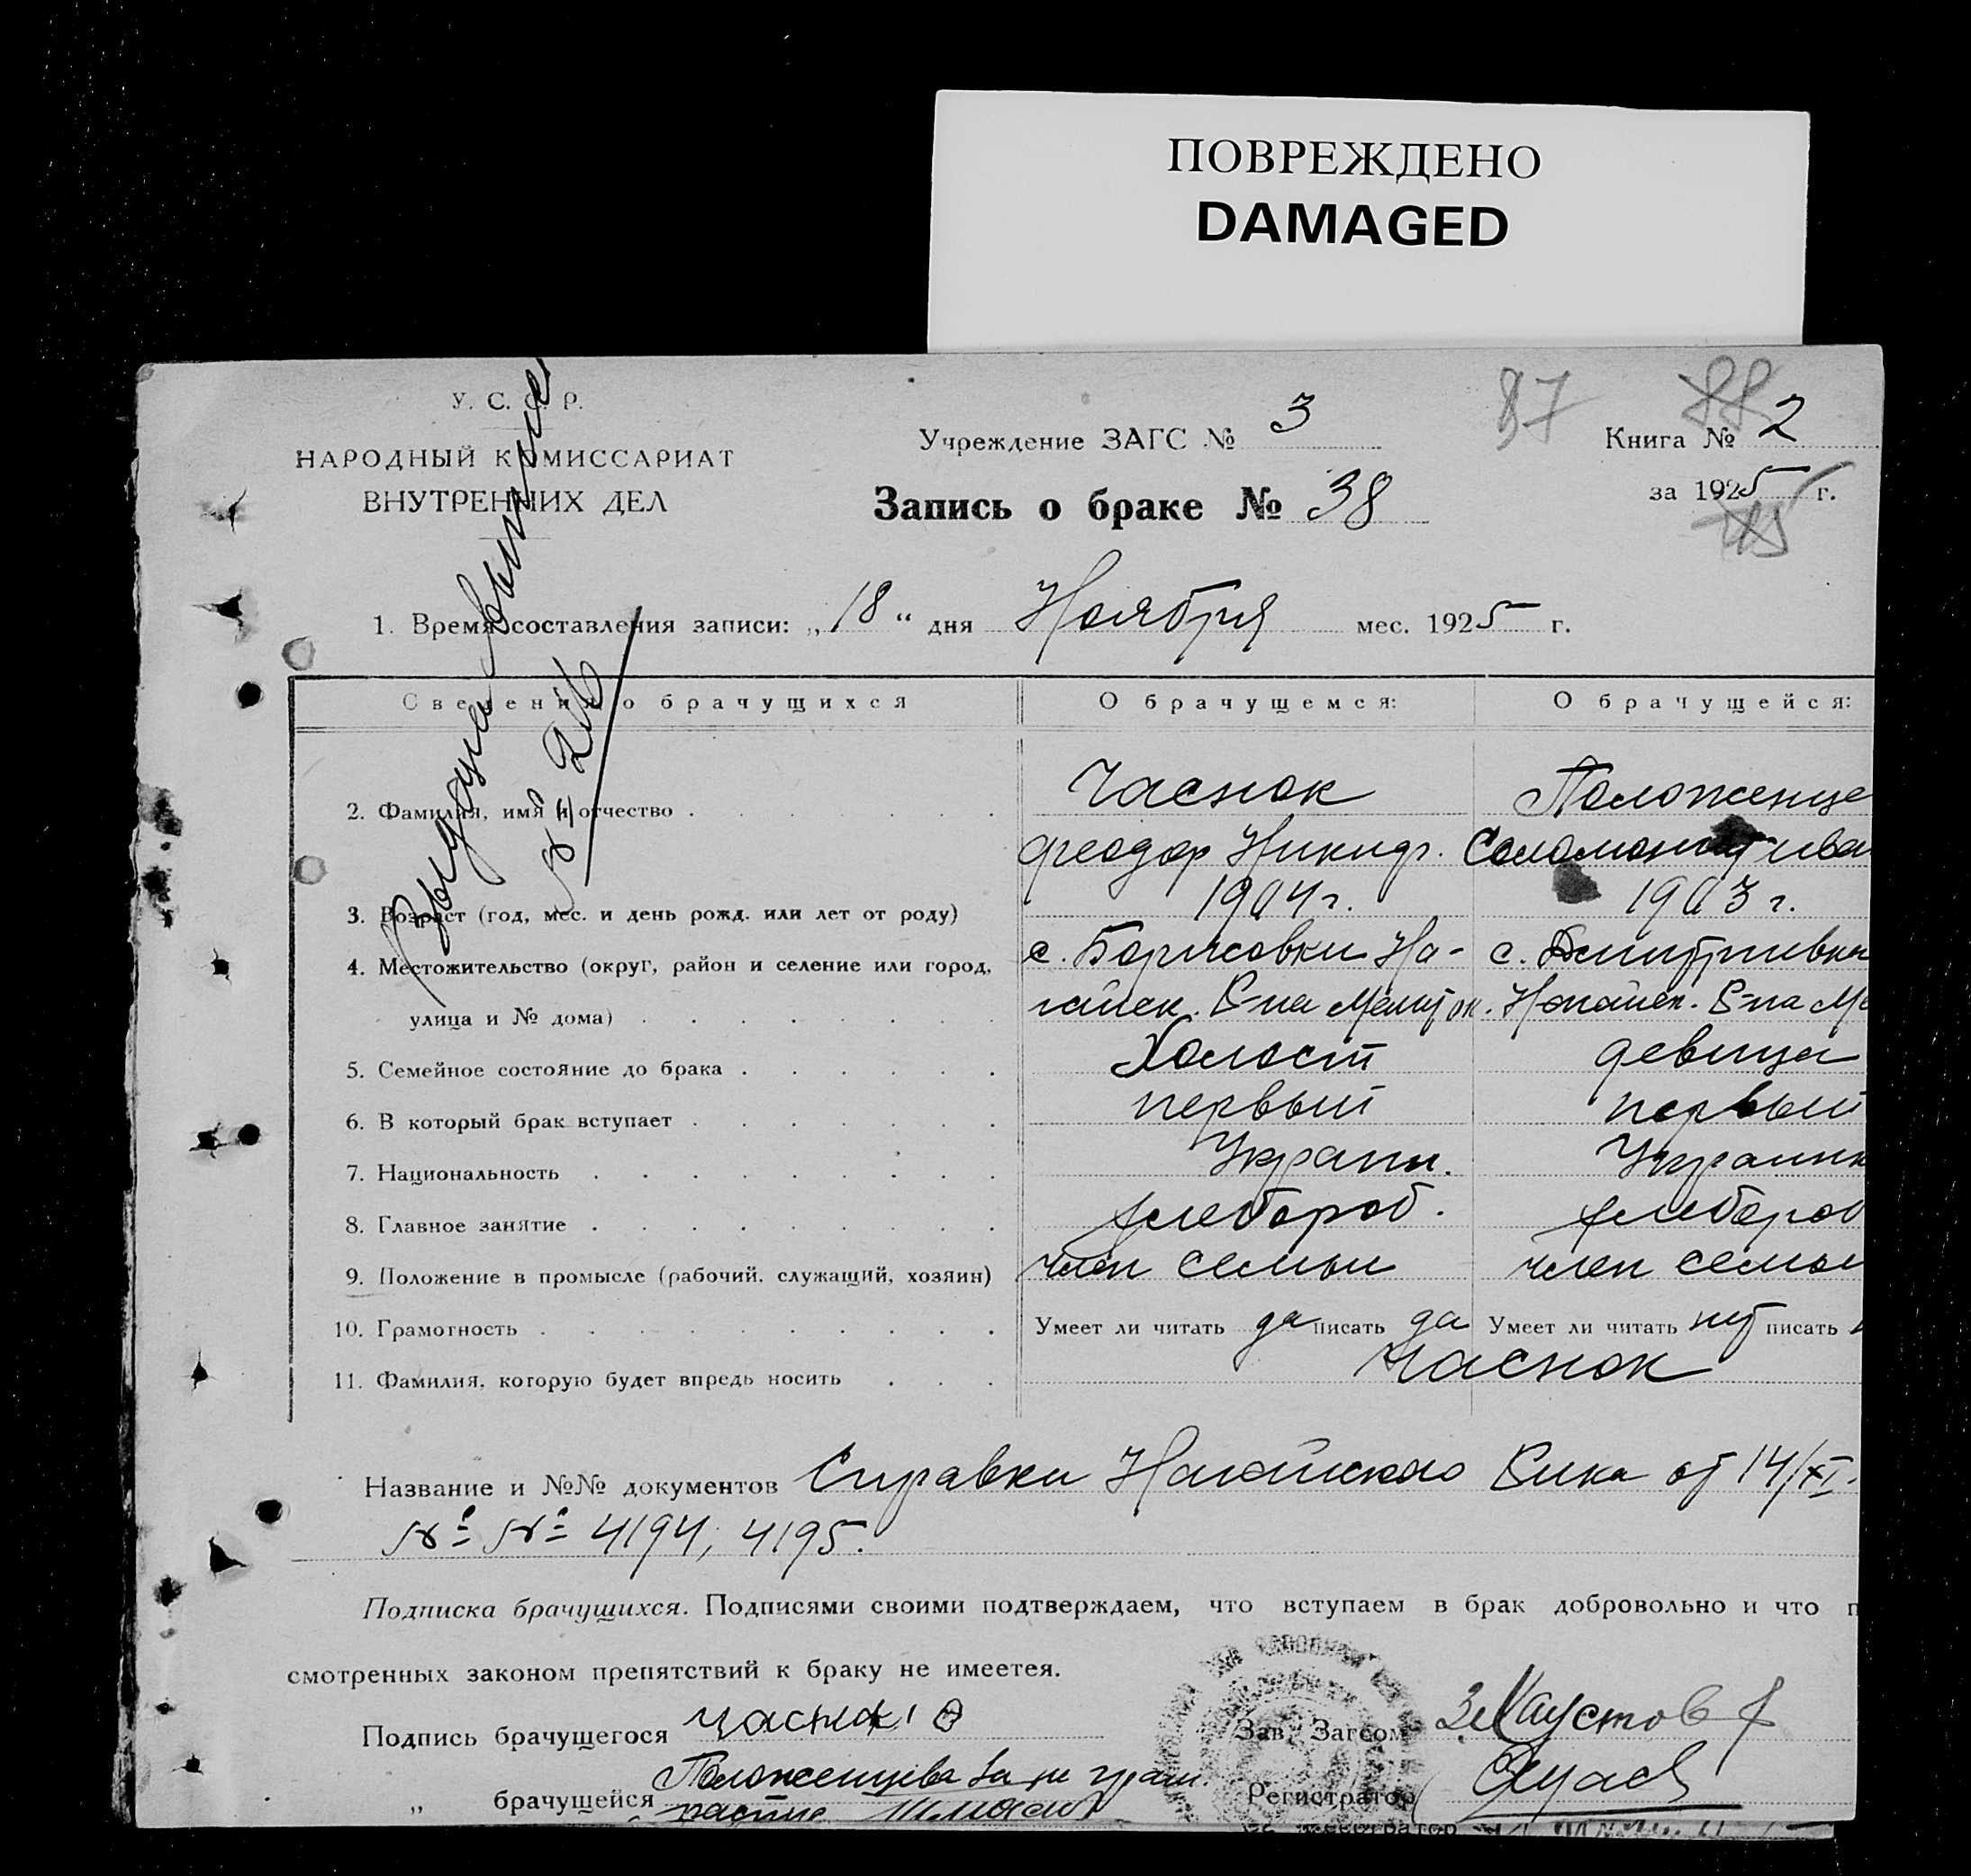 ПОВРЕЖДЕНО
DAMAGED
У. С. С. Р.
НАРОДНЫЙ КОМИССАРИАТ
ВНУТРЕННИХ ДЕЛ
Учреждение ЗАГС № 3
87 88
Книга № 2
Запись о браке № 38
за 1925 г.
1. Время составления записи: „18“ дня Ноября мес. 1925 г.
Сведения о брачущихся О брачущемся: О брачущейся:
Часнок Положенце
2. Фамилия, имя и отчество
Феодор Никид. Соломон Ива
3. Возраст (год, мес. и день рожд. или лет от роду) 1904 г. 1903 г.
4. Местожительство (округ, район и селение или город, с. Борисовки На- с. Дмитривки
улица и № дома) гайск. Р-на Мелит ок. Нагайск. Р-на Ме
5. Семейное состояние до брака Холост девица
6. В который брак вступает первый первый
7. Национальность Украин. Украинк
8. Главное занятие хлебороб. хлебороб
9. Положение в промысле (рабочий, служащий, хозяин) член семьи член семьи
10. Грамотность Умеет ли читать да писать да Умеет ли читать нет писать
11. Фамилия, которую будет впредь носить Часнок
Название и №№ документов Справки Нагайского Вика от 14/XI.
№ № 4194, 4195.
Подписка брачущихся. Подписями своими подтверждаем, что вступаем в брак добровольно и что п
смотренных законом препятствий к браку не имеется.
Подпись брачущегося Часнок Ѳ Зав. Загсом Хаустов
„ брачущейся Положенцева за не грам. Регистратор